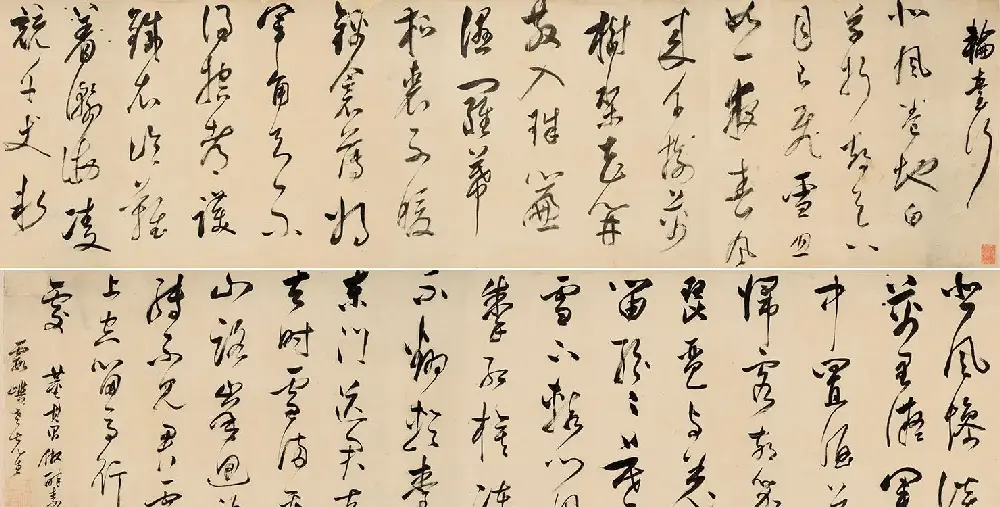 輪臺行
北風卷地白
草折胡天八
月即飛雪忽
如一夜春風
來千樹萬
樹梨花開
散入珠簾
濕羅幕
狐裘不暖
錦衾薄將
軍角弓不
得控都護
鐵衣冷難
著瀚海凌
千丈
風慘淡
萬里凝軍
中置酒飲
歸客胡笳
琵琶與羌
笛紛紛暮
雪下轅門風
掣紅旗凍
不翻輪臺
東門送君去
去時雪滿天
山路
轉不見君雪
上空留馬行
處
董其昌倣醉素